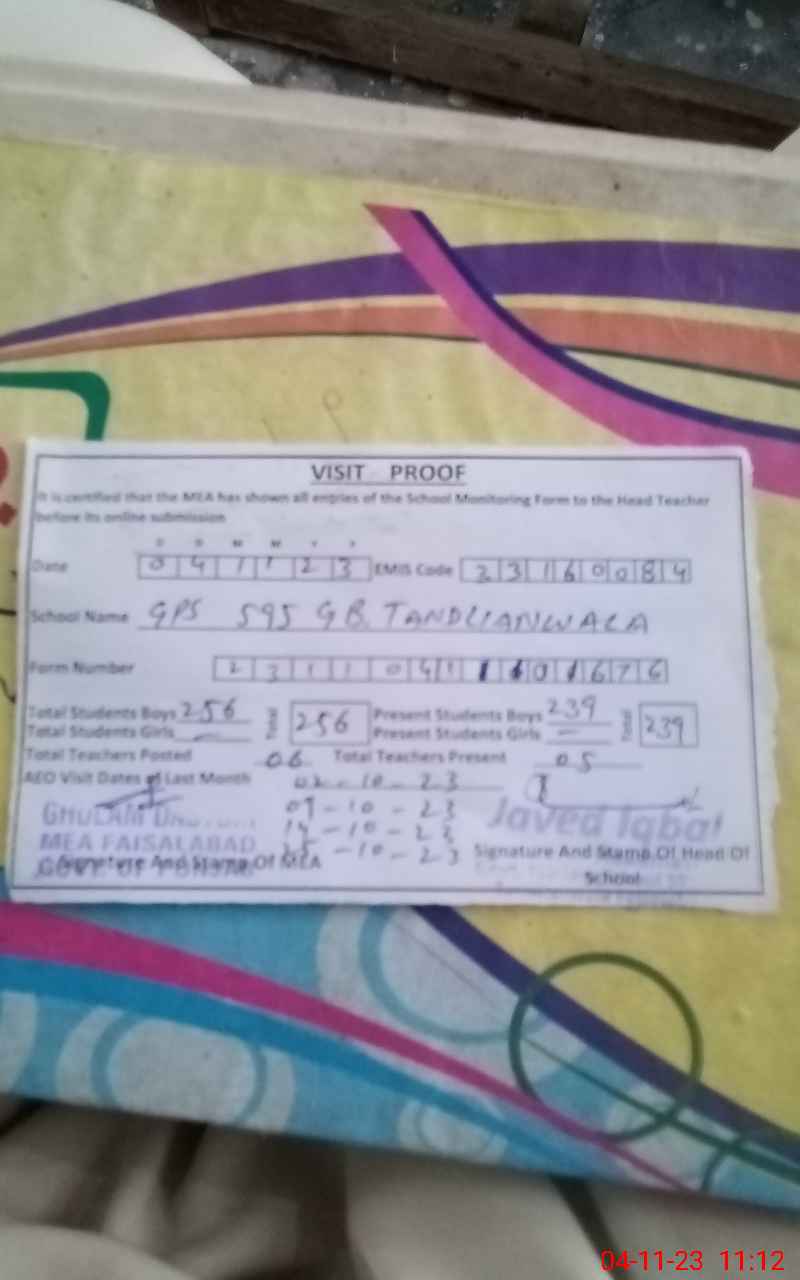 VISIT PROOF
It is certified that the MEA has shown all entries of the School Monitoring Form to the Head Teacher
before its online submission
D D M M Y Y
Date 0 4 1 1 2 3 EMIS Code 2 3 1 6 0 0 8 4
School Name GPS 595 GB TANDLIANWALA
Form Number 2 3 1 1 0 4 1 1 6 0 1 6 7 6
Total Students Boys 256 Total 256 Present Students Boys 239 Total 239
Total Students Girls — Present Students Girls —
Total Teachers Posted 06 Total Teachers Present 05
AEO Visit Dates of Last Month 02-10-23
09-10-23
GHULAM Javed Iqbal
14-10-23
MEA FAISALABAD
25-10-23
Signature And Stamp Of MEA Signature And Stamp Of Head Of
School
GOVT. OF PUNJAB
04-11-23 11:12